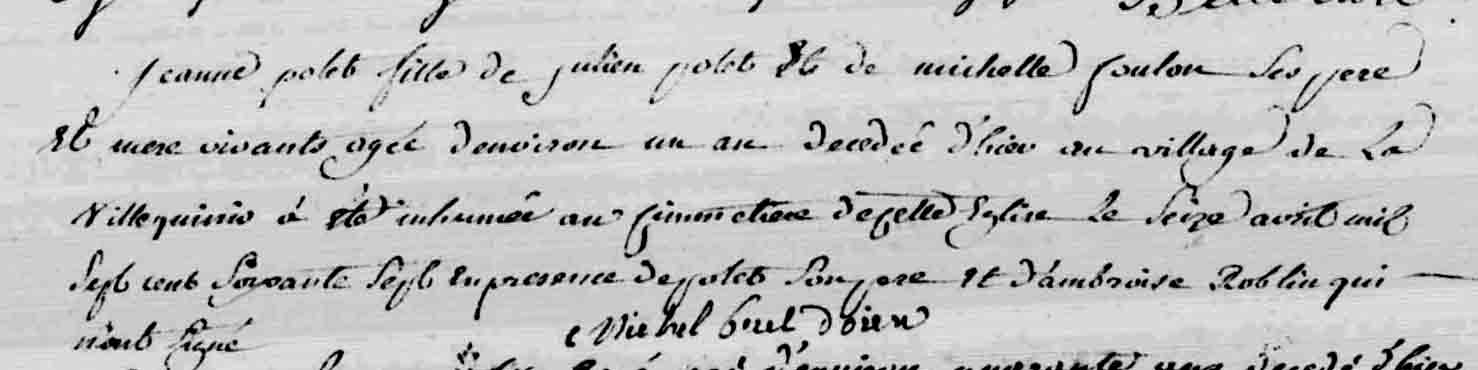 jeanne polet fille de julien polet Et de michelle foulon Ses pere
Et mere vivants agée denviron un an decedeé d'hier au village de La
Villequinio á Eté inhumée au Cimmetiere de Celle Eglise Le Seize avril mil
Sept cent Soixante Sept En presence de polet Son pere Et d'ambroise Roblin qui
n'ont Signé
Michel burel doien
d'environ quarante ans decedé d'hier